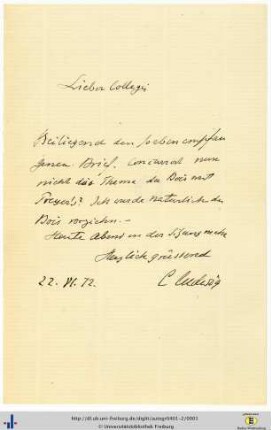 Lieber College
Beiliegend den soeben empfan
genen Brief. Concurrirt nun
nicht das Thema du Bois mit
Ich würde natürlich du
Bois vorziehn. –
Heute Abend in der
Herzlich grüssend
22. VI. 72. C Ludwig
http://dl.ub.uni-freiburg.de/diglit/autogr0401-2/0001
© Universitätsbibliothek Freiburg